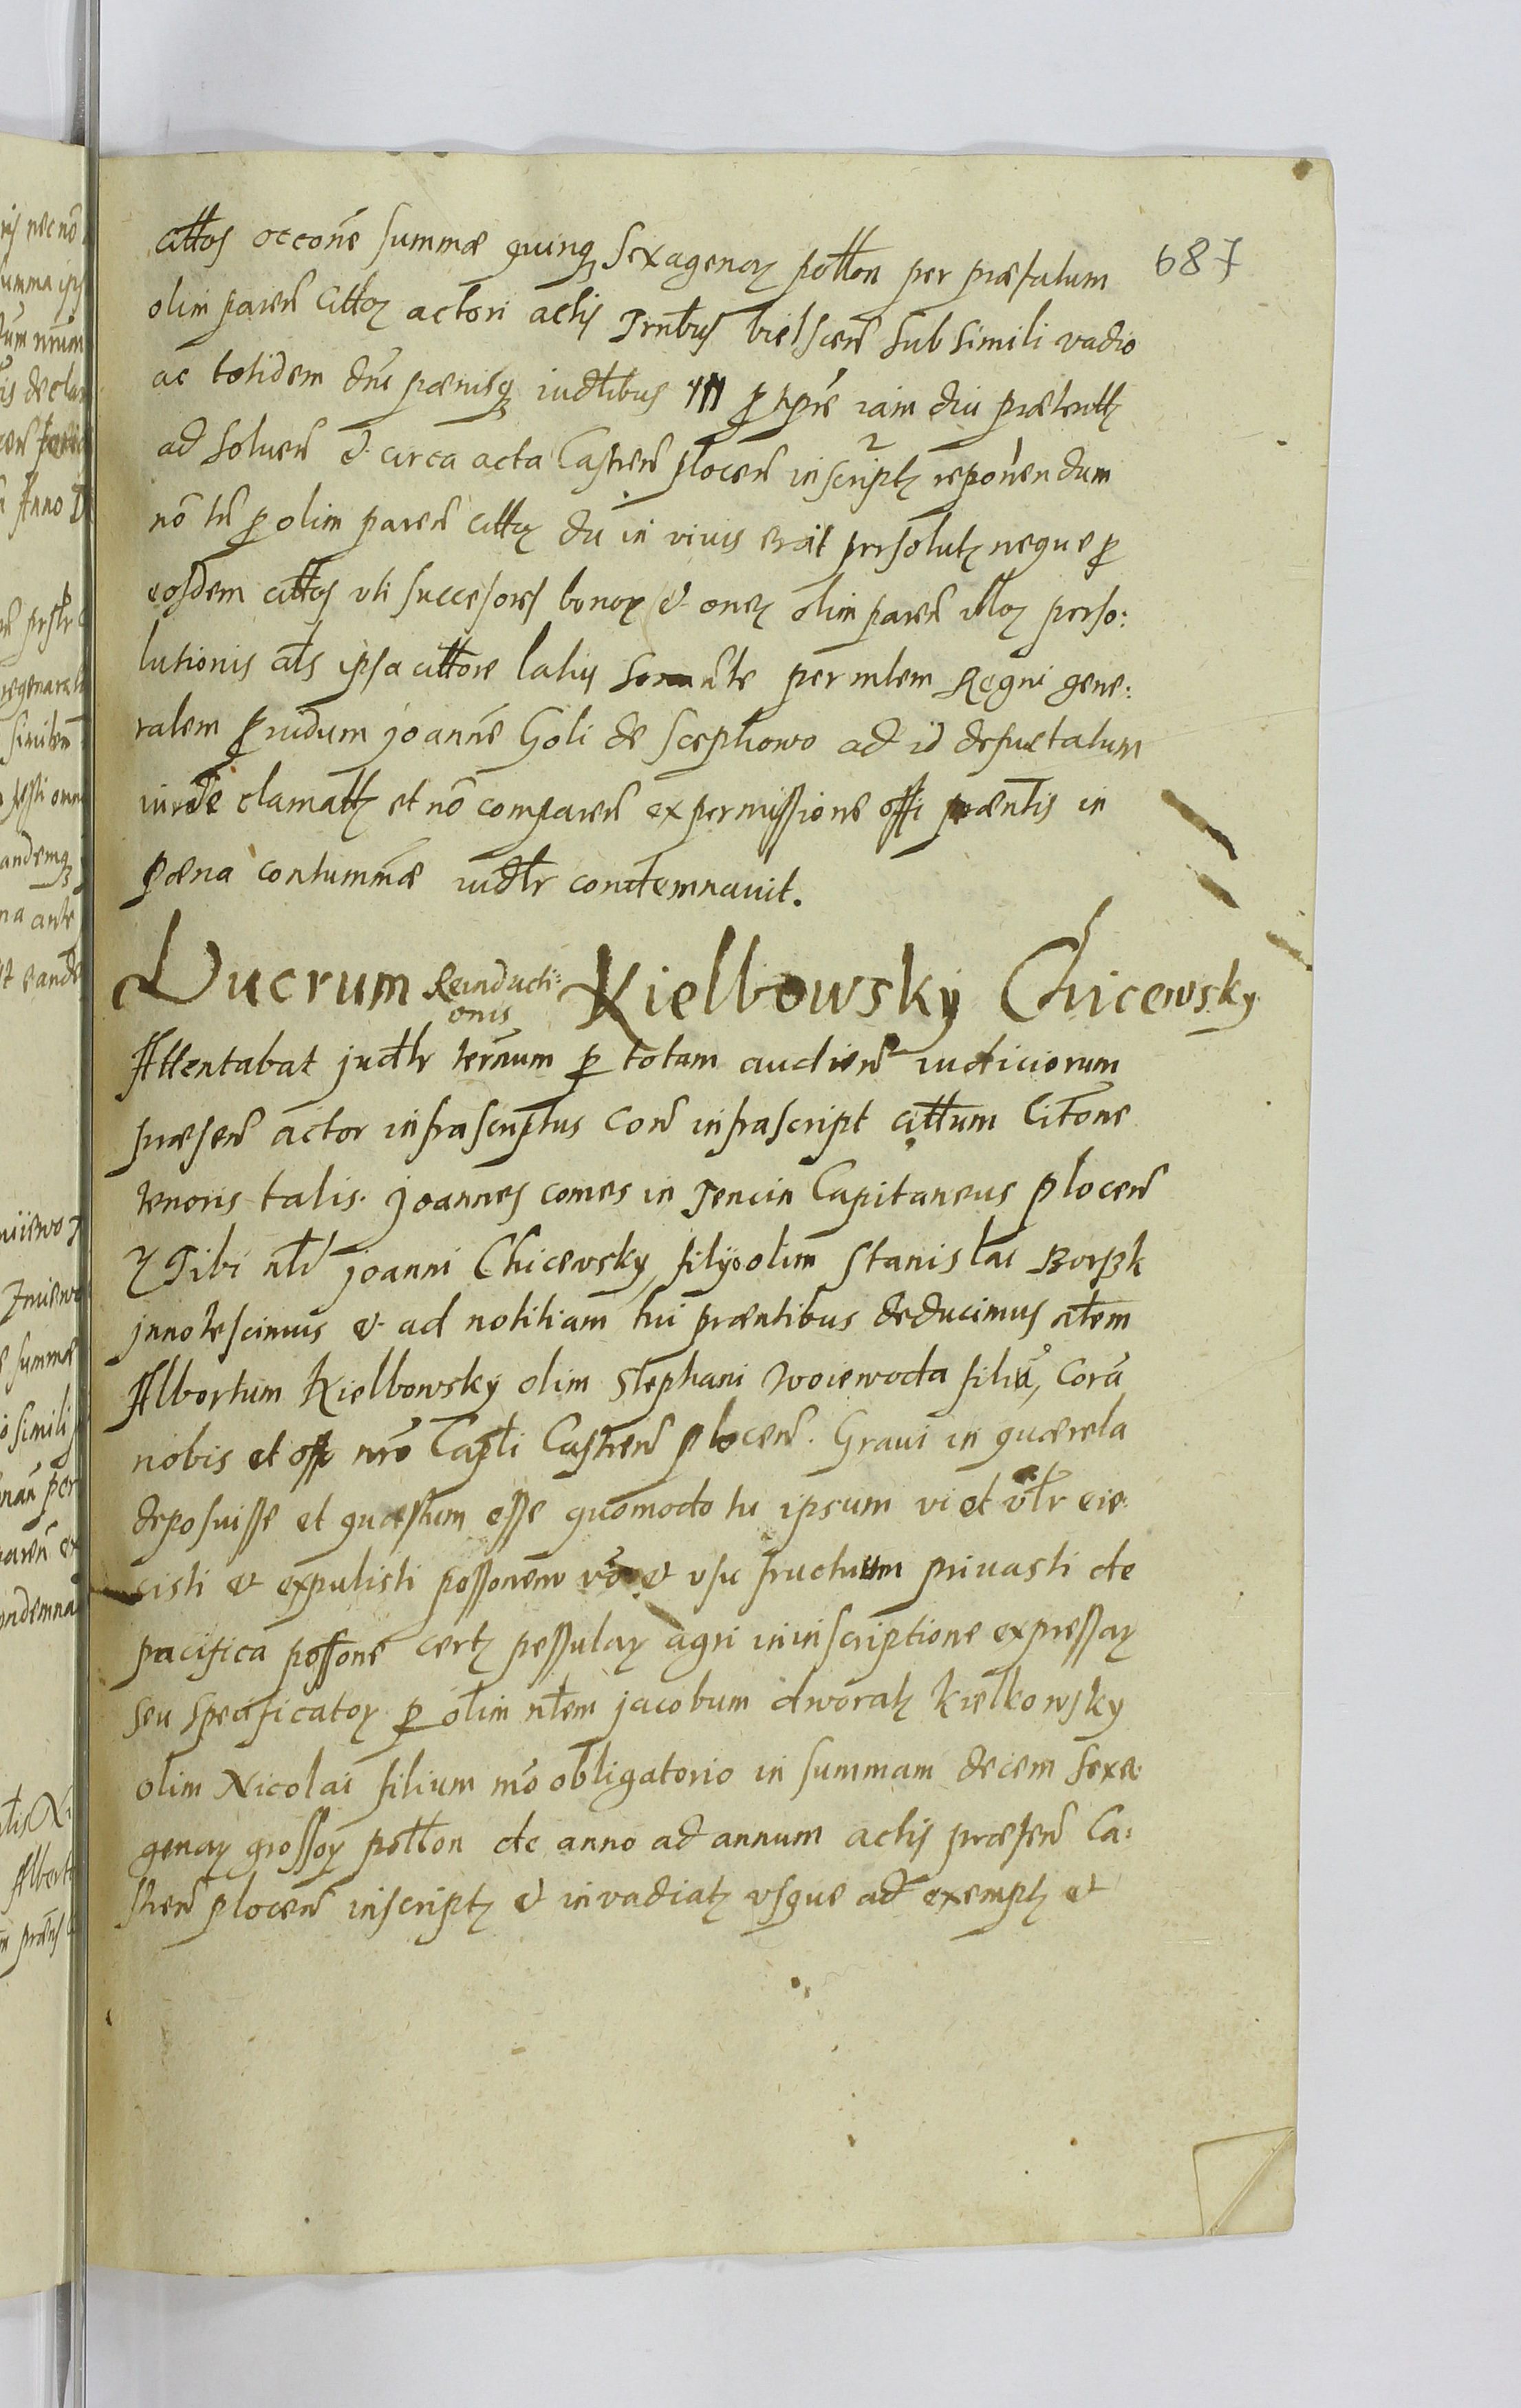 687
cittos occone summæ quinq sexagenar potton per præfatum
olim paren cittor actori actis Trnbus bielscen sub simili vadio
ac totidem dni pænisq iudtibus p tpre iam diu prætentt
ad soluen & circa acta Castren plocen inscript reponendum
nō tn p olim paren cittor du in viuis erat persolutz neque p
eosdem cittos uti successores bonor & oner olim paren illor perso:
lutionis als ipsa cittore latius sonante per mlem Regni gene:
ralem prudum joanne Goli de Sceptowo ad id defuctatum
iurde clamatt et nō comparen ex permissione offi præntis in
pæna contummæ iudtr condemnauit.
Lucrum Reinducti:
onis Kielbowsky Chicewsky
Attentabat judtr ternum p totam audien iudiciorum
præsen actor infrascriptus Con infrascript cittum Citone
tenoris talis. Joannes comes in Tencin Capitaneus plocen
Tibi nli Joanni Chicewsky, filyo olim Stanislai Borzk
jnnotescimus & ad notitiam tui præntibus deducimus nlem
Albertum Kielbowsky olim Stephani Woiewoda filiu, Corā
nobis et off nro Capti Castren plocen. Graui in quærela
deposuisse et quæstum esse quomodo tu ipsum vi et vltr eie:
cisti & expulisti possonem vō & usu fructuum priuasti de
pacifica possone certz pessular agri in inscriptione expressar
seu specificator p olim nlem jacobum dworatz kielkowsky
olim Nicolai filium mō obligatorio in summam decem sexa:
genar grossor potton de anno ad annum actis præsen Ca:
stren plocen inscriptz & invadiatz usque ad exemptz &